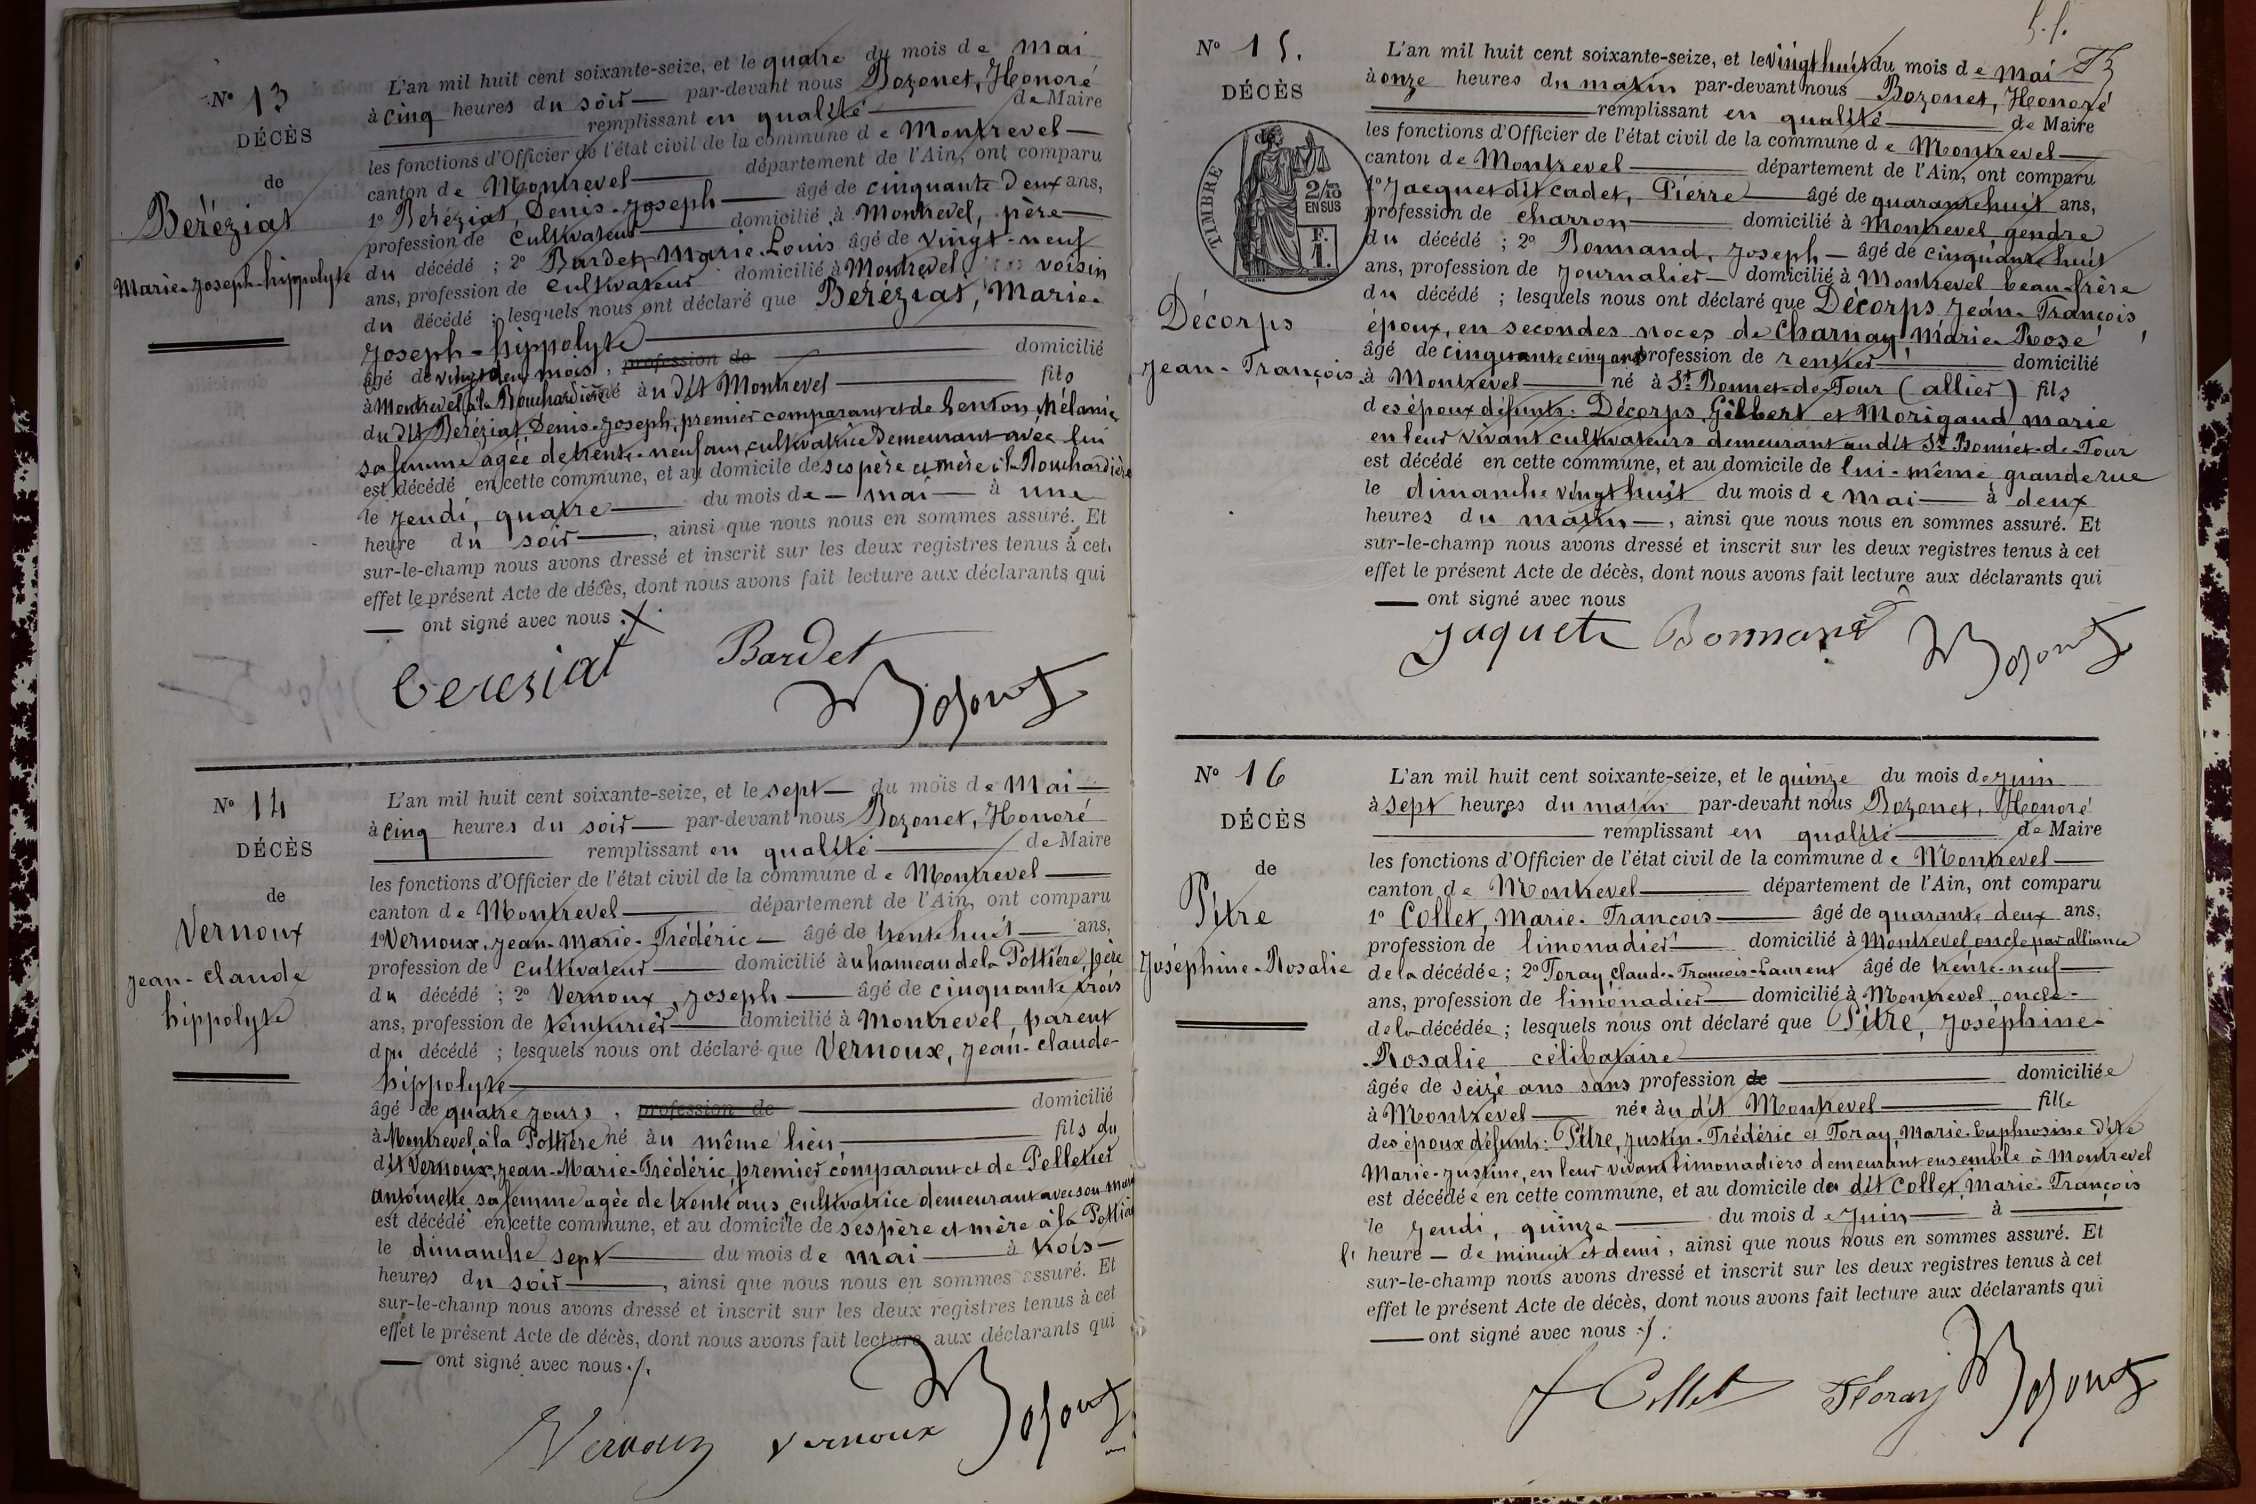 N° 13
DÉCÈS
de
Beréziat
Marie-Joseph-hippolyte
L'an mil huit cent soixante-seize, et le quatre du mois de mai
à cinq heures du soir par-devant nous Bozonet, Honoré
remplissant en qualité de Maire
les fonctions d'Officier de l'état civil de la commune de Montrevel
canton de Montrevel département de l'Ain, ont comparu
1° Beréziat, Denis-Joseph âgé de cinquante deux ans,
profession de cultivateur domicilié à Montrevel, père
du décédé ; 2° Bardet, Marie-Louis âgé de vingt-neuf
ans, profession de cultivateur domicilié à Montrevel voisin
du décédé ; lesquels nous ont déclaré que Beréziat, Marie-
Joseph-hippolyte
âgé de vingt deux mois, profession de domicilié
à Montrevel à la Bouchardière né àu dit Montrevel fils
du dit Beréziat, Denis-Joseph, premier comparant et de Mélanie
sa femme agée de trente-neuf ans, cultivatrice demeurant avec lui
est décédé en cette commune, et au domicile de ses père et mère à la Bouchardière
le jeudi, quatre du mois de mai à une
heure du soir, ainsi que nous nous en sommes assuré. Et
sur-le-champ nous avons dressé et inscrit sur les deux registres tenus à cet
effet le présent Acte de décès, dont nous avons fait lecture aux déclarants qui
ont signé avec nous ./.
bereziat Bardet Bozonet
N° 14
DÉCÈS
de
Vernoux
Jean-claude
hippolyte
L'an mil huit cent soixante-seize, et le sept du mois de Mai
à cinq heures du soir par-devant nous Bozonet, Honoré
remplissant en qualité de Maire
les fonctions d'Officier de l'état civil de la commune de Montrevel
canton de Montrevel département de l'Ain, ont comparu
1° Vernoux, Jean-Marie-Frédéric âgé de trente huit ans,
profession de cultivateur domicilié àu hameau de la Pottière, père
du décédé ; 2° Vernoux, Joseph âgé de cinquante trois
ans, profession de teinturier domicilié à Montrevel, parent
du décédé ; lesquels nous ont déclaré que Vernoux, Jean-claude-
hippolyte
âgé de quatre jours, profession de domicilié
à Montrevel, à la Pottière né àu même lieu fils du
dit Vernoux, Jean-Marie-Frédéric, premier comparant et de Pelletier
antoinette sa femme agée de trente ans, cultivatrice demeurant avec son mari
est décédé en cette commune, et au domicile de ses père et mère à la Pottière
le dimanche sept du mois de mai à trois
heures du soir, ainsi que nous nous en sommes assuré. Et
sur-le-champ nous avons dressé et inscrit sur les deux registres tenus à cet
effet le présent Acte de décès, dont nous avons fait lecture aux déclarants qui
ont signé avec nous ./.
Vernoux vernoux Bozonet
N° 15.
DÉCÈS
TIMBRE
2/10
EN SUS
F.
1.
Décorps
Jean-François
L'an mil huit cent soixante-seize, et le vingt huit du mois de mai
à onze heures du matin par-devant nous Bozonet, Honoré
remplissant en qualité de Maire
les fonctions d'Officier de l'état civil de la commune de Montrevel
canton de Montrevel département de l'Ain, ont comparu
1° Jacquet dit cadet, Pierre âgé de quarante huit ans,
profession de charron domicilié à Montrevel gendre
du décédé ; 2° Bonnand, Joseph âgé de cinquante huit
ans, profession de Journalier domicilié à Montrevel beau-frère
du décédé ; lesquels nous ont déclaré que Décorps Jean-François
époux, en secondes noces de Charnay Marie-Rose
âgé de cinquante cinq ans profession de rentier domicilié
à Montrevel né à St Bonnet-de-Four (allier) fils
des époux défunts: Décorps, Gilbert et Morigaud marie
en leur vivant cultivateurs demeurant au dit St Bonnet-de-Four
est décédé en cette commune, et au domicile de lui-même grande rue
le dimanche vingt huit du mois de mai à deux
heures du matin, ainsi que nous nous en sommes assuré. Et
sur-le-champ nous avons dressé et inscrit sur les deux registres tenus à cet
effet le présent Acte de décès, dont nous avons fait lecture aux déclarants qui
ont signé avec nous
Jaquet Bonnand Bozonet
N° 16
DÉCÈS
de
Pitre
Joséphine-Rosalie
L'an mil huit cent soixante-seize, et le quinze du mois de juin
à sept heures du matin par-devant nous Bozonet, Honoré
remplissant en qualité de Maire
les fonctions d'Officier de l'état civil de la commune de Montrevel
canton de Montrevel département de l'Ain, ont comparu
1° Collet, Marie-François âgé de quarante deux ans,
profession de limonadier domicilié à Montrevel oncle par alliance
de la décédée; 2° Foray Claude-François-Laurent âgé de trente-neuf
ans, profession de limonadier domicilié à Montrevel oncle
de la décédée; lesquels nous ont déclaré que Pitre, Joséphine-
Rosalie célibataire
âgée de seize ans sans profession de domiciliée
à Montrevel née àu dit Montrevel fille
des époux défunts: Pitre, Justin-Frédéric et Foray, Marie-Euphrosine dite
Marie-Justine, en leur vivant limonadiers demeurant ensemble à Montrevel
est décédée en cette commune, et au domicile du dit Collet, Marie-François
le jeudi, quinze du mois de Juin à
l' heure de minuit et demi, ainsi que nous nous en sommes assuré. Et
sur-le-champ nous avons dressé et inscrit sur les deux registres tenus à cet
effet le présent Acte de décès, dont nous avons fait lecture aux déclarants qui
ont signé avec nous ./.
Collet Foray Bozonet